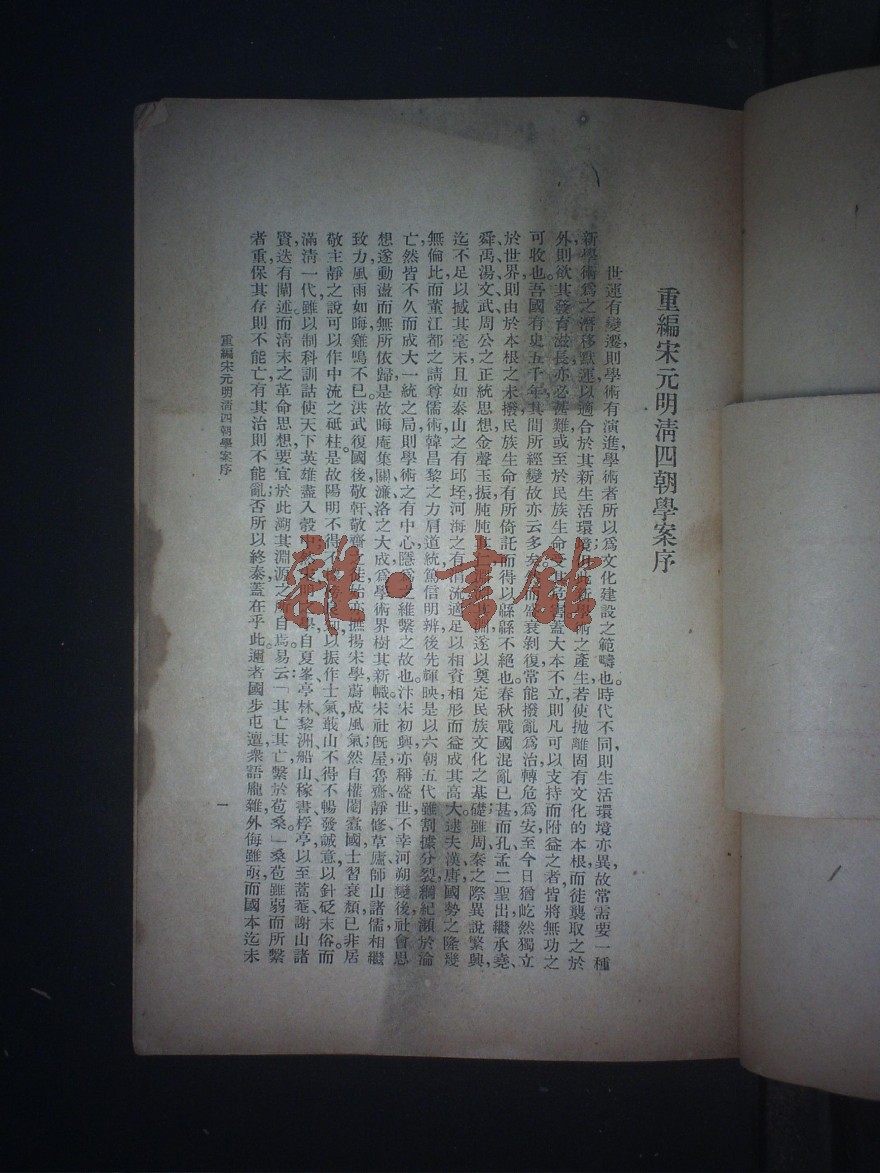 重編宋元明清四朝學案序
世運有變遷,則學術有演進,學術者所以為文化建設之範疇也。時代不同,則生活環境亦異,故常需要一種
新學術為之潛移默運,以適合於其新生活環境;但此新學術之產生,若使拋離固有文化的本根,而徒襲取之於
外,則欲其發育滋長,亦必甚難,或至於民族生命,危害,蓋大本不立,則凡可以支持而附益之者,皆將無功之
可收也。吾國有史五千年,其間所經變故亦云多矣,而盛衰剝復,常能撥亂為治,轉危為安,至今日猶屹然獨立
於世界,則由於本根之未撥,民族生命有所倚託,而得以緜緜不絕也。春秋戰國,混亂已甚,而孔孟二聖出,繼承堯、
舜、禹、湯、文、武、周公之正統思想,金聲玉振,肫肫其仁,淵淵其淵,遂以奠定民族文化之基礎;雖周秦之際,異說繁興,
迄不足以撼其毫末,且如泰山之有邱垤,河海之有涓流,適足以相資相形,而益成其高大。逮夫漢唐國勢之隆,幾
無倫比,而董江都之請尊儒術,韓昌黎之力肩道統,篤信明辨,後先輝映,是以六朝五代,雖割據分裂,綱紀瀕於淪
亡,然皆不久而成大一統之局,則學術之有中心,隱為之維繫之故也。汴宋初興,亦稱盛世,不幸河朔變後,社會思
想遂動盪而無所依歸,是故晦庵集關、濂、洛之大成,為學術界樹其新幟。宋社旣屋,魯齋、靜修、草廬、師山諸儒,相繼
致力,風雨如晦,雞鳴不已。洪武復國後,敬軒、敬齋之徒,始亦撫揚宋學,蔚成風氣,然自權閹蠹國,士習衰頹,已非居
敬主靜之說,可以作中流之砥柱。是故陽明不得不,以振作士氣,蕺山不得不暢發誠意,以針砭末俗。而
滿清一代,雖以制科訓詁,使天下英雄盡入彀中,明學,自夏峯、亭林、黎洲、船山、稼書、桴亭,以至蒿菴、謝山諸
賢,迭有闡述,而清末之革命思想,要宜於此溯其淵源之所自焉。易云:「其亡其亡,繫於苞桑。」桑苞雖弱,而所繫
者重,保其存則不能亡,有其治則不能亂,否所以終泰,蓋在乎此。邇者國步屯邅,衆語龐雜,外侮雖亟,而國本迄未
重編宋元明清四朝學案序
一
雜·書館